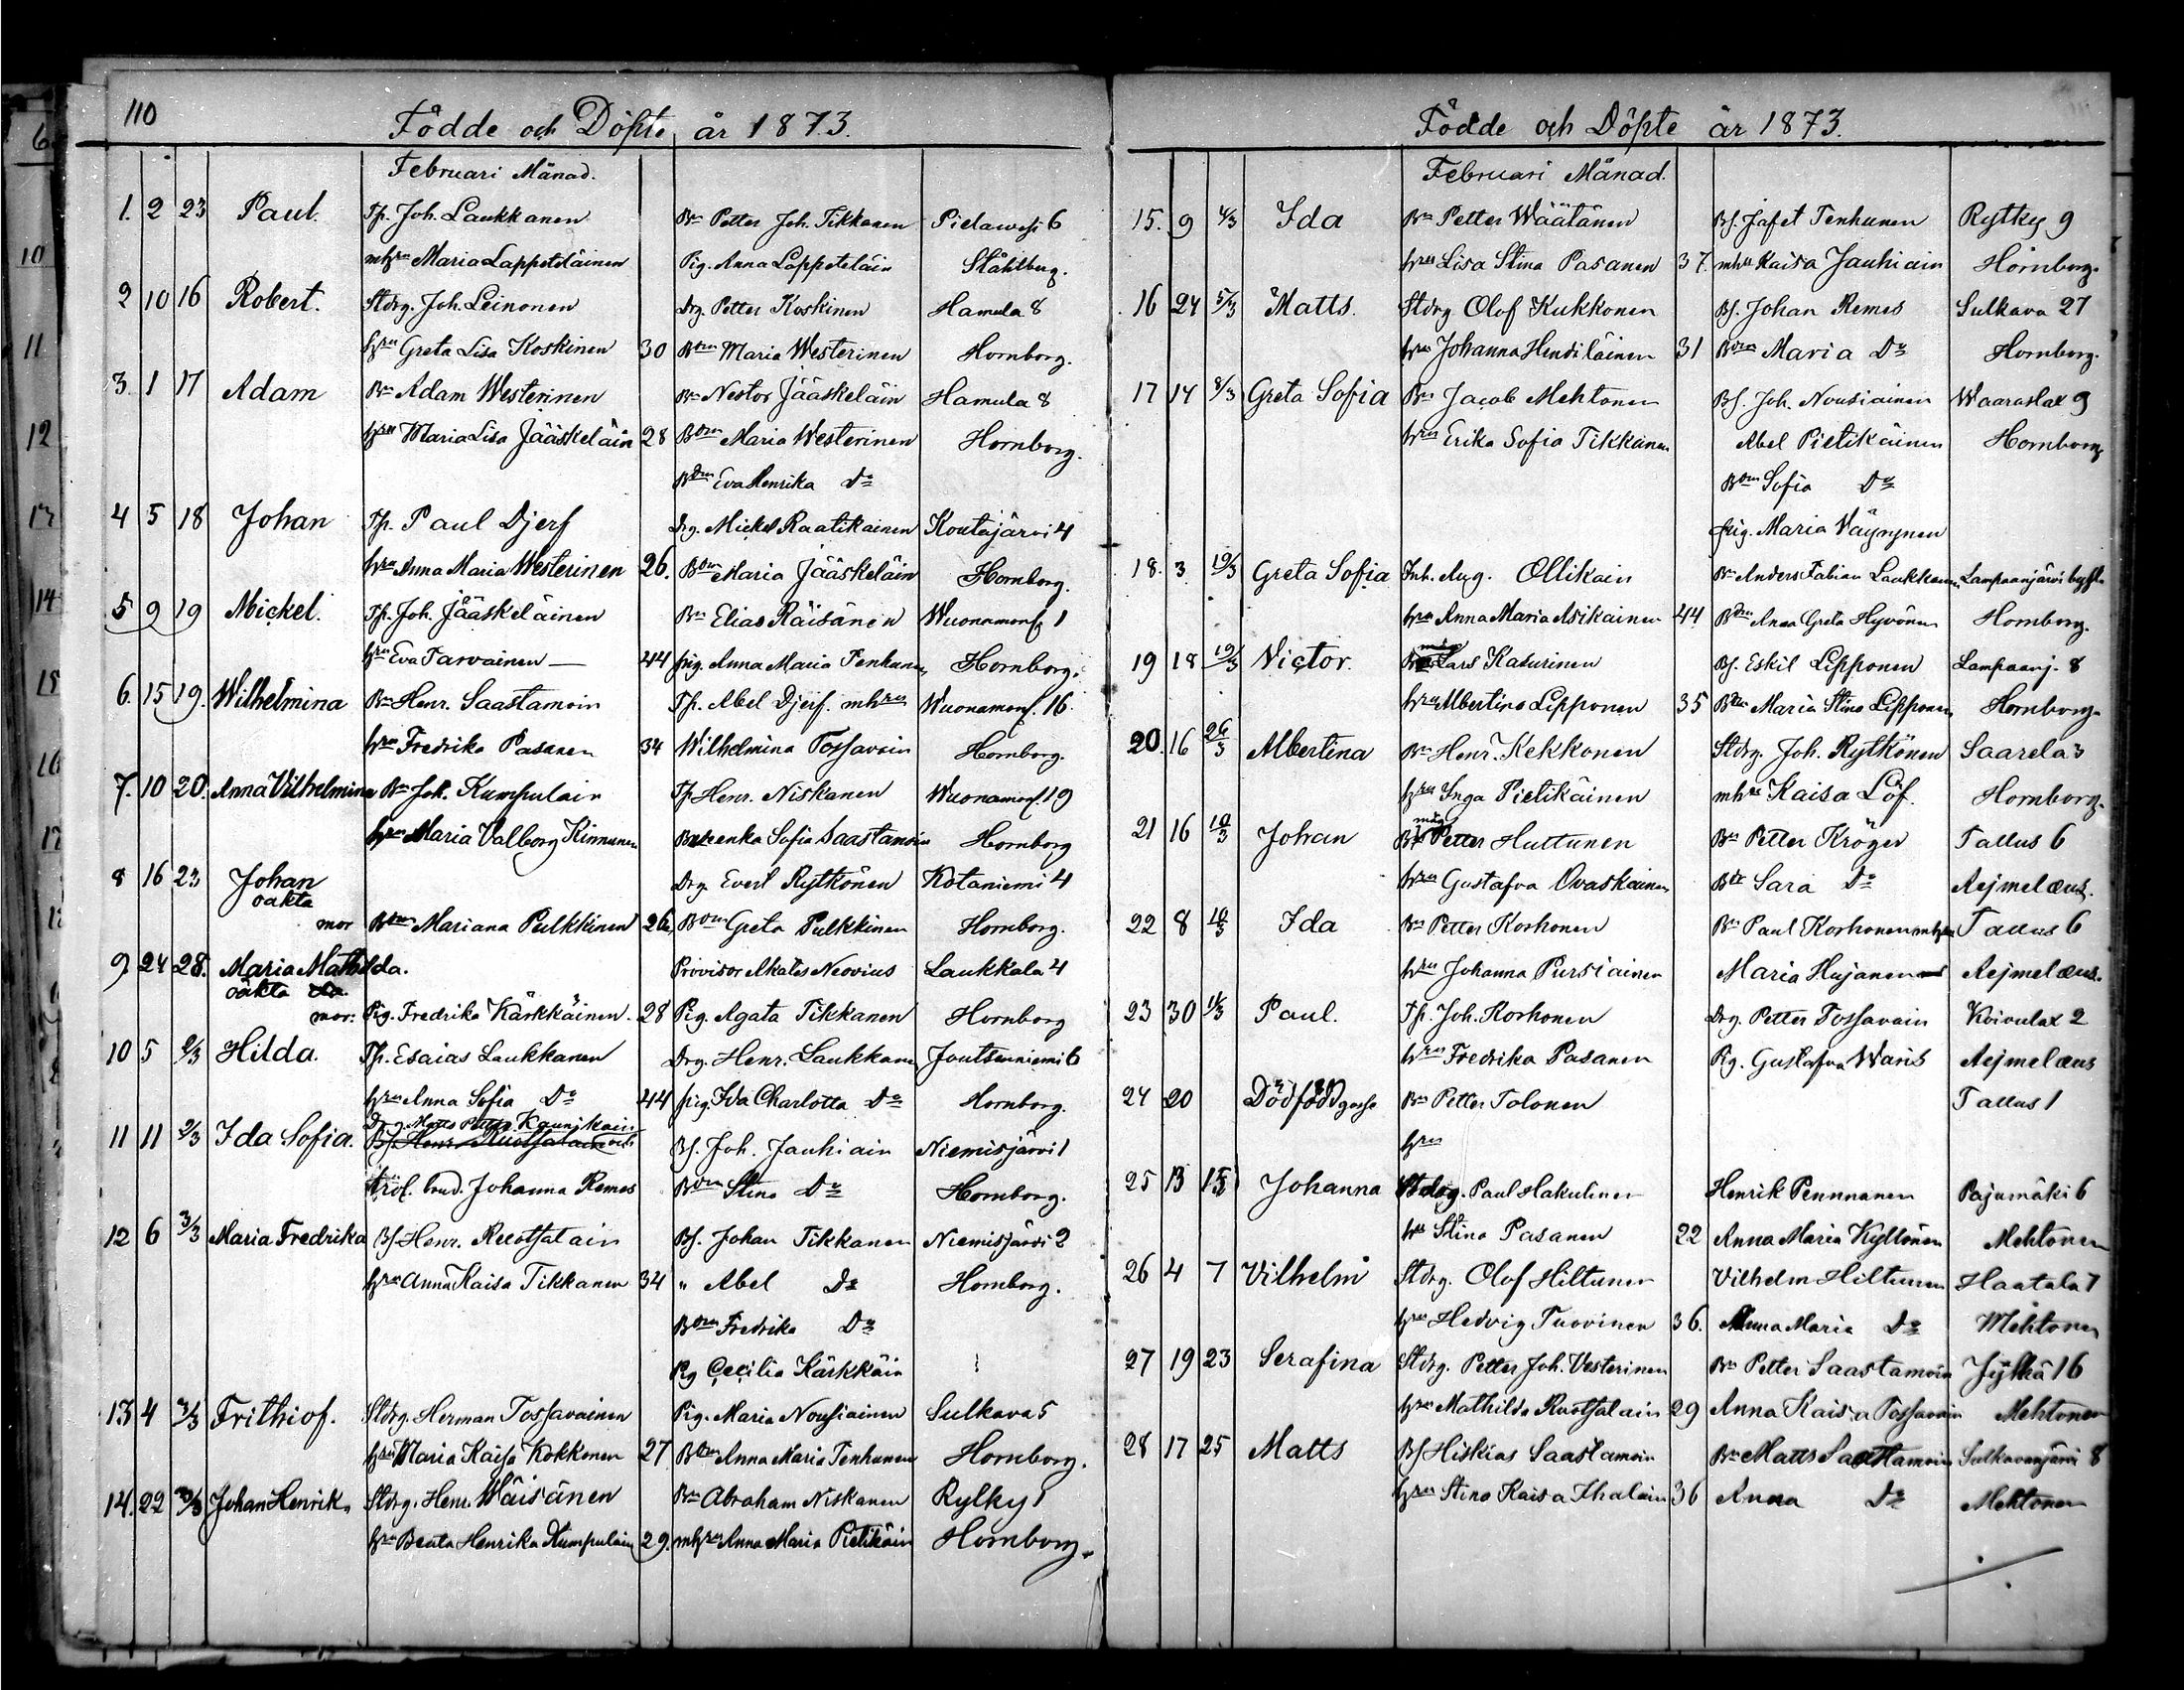 110
Födde och Döpte, år 1873.
Februari Månad.
1. 2 23 Paul. Tp. Joh. Laukkanen Bn Petter Joh. Tikkanen Pielavesi 6
mhru Maria Lappeteläinen Pig. Anna Lappeteläin Ståhlberg.
2 10 16 Robert. Stdrg. Joh. Leinonen Drg. Petter Koskinen Hamula 8
hru Greta Lisa Koskinen 30 Bdrn Maria Westerinen Hornborg.
3. 1 17 Adam Bn Adam Westerinen Bn Nestor Jääskeläin Hamula 8
hru Maria Lisa Jääskeläin 28 Bdrn Maria Westerinen Hornborg.
Bdrn Eva Henrika Do
4 5 18 Johan Tp. Paul Djerf Drg. Mickel Raatikainen Koutajärvi 4
hru Anna Maria Westerinen 26. Bdrn Maria Jääskeläin Hornborg.
5 9 19 Mickel. Tp. Joh. Jääskeläinen Bn Elias Räisänen 1
hru Eva Tarvainen 44 pig. Anna Maria Tenhunen Hornborg.
6. 15 19. Wilhelmina Bn Henr. Saastamoin Tp. Abel Djerf. mhru 16.
hru Fredrika Pasanen 34 Wilhelmina Tossavain Hornborg.
7. 10 20. Anna Vilhelmina Bn Joh. Kumpulain Tp Henr. Niskanen 19
hru Maria Valborg Kinnunen Sofia Saastamoin Hornborg
8 16 23 Johan Drg. Evert Rytkönen Kotaniemi 4
oäkta
mor Bdrn Mariana Pulkkinen 26, Bdrn Greta Pulkkinen Hornborg.
9. 24 28. Maria Mathilda. Provisor Neovius Laukkala 4
oäkta
mor: Pig. Fredrika Kärkkäinen. 28 Pig. Agata Tikkanen Hornborg
10 5 2/3 Hilda. Tp. Esaias Laukkanen Drg. Henr. Laukkanen Joutsenniemi 6
hru Anna Sofia Do 44 pig. Ida Charlotta Do Hornborg.
Drg. Matts Petter
11 11 2/3 Ida Sofia. Bs. Henr. Ruotsalain Bs. Joh. Jauhiain Niemisjärvi 1
trol. brud. Johanna Remes Bdrn Stina Do Hornborg.
12 6 3/3 Maria Fredrika Bs. Henr. Ruotsalain Bs. Johan Tikkanen Niemisjärvi 2
hru Anna Kaisa Tikkanen 34 " Abel Do Hornborg.
Bdrn Fredrika Do
Pg Cecilia Kärkkäin
13 4 3/3 Frithiof. Stdrg. Herman Tossavainen Pig. Maria Nousiainen Sulkava 5
hru Maria Kaisa Kokkonen 27 Bdrn Anna Maria Tenhunen Hornborg.
14. 22 Johan Henrik, Stdrg. Henr. Wäisänen Bn Abraham Niskanen Rytky 1
hru Beata Henrika Kumpulain 29. mhru Anna Maria Pietikäin Hornborg.
Födde och Döpte år 1873.
Februari Månad.
15. 9 4/3 Ida Bn Petter Wäätänen Bs. Jafet Tenhunen Rytky 9
hru Lisa Stina Pasanen 37. mhu Kaisa Jauhiain Hornborg.
16 24 5/3 Matts. Stdrg Olof Kukkonen Bs. Johan Remes Sulkava 27
hru Johanna Hendiläinen 31 Bdrn Maria Do Hornborg.
17 14 8/3 Greta Sofia Bn Jacob Mehtonen Bs. Joh. Nousiainen Waaraslax 9
hru Erika Sofia Tikkanen Abel Pietikäinen Hornborg
Bdrn Sofia Do
pig. Maria Väyrynen
18. 3 10/3 Greta Sofia Inh. Aug. Ollikain Bn Anders Fabian Laukkanen Lampaanjärvi
hru Anna Maria Asikainen 44 Bdrn Anna Greta Hyvönen Hornborg.
19 18 10/3 Victor. måg Lars Kasurinen Bs. Eskil Lipponen Lampaanj. 8
hru Albertina Lipponen 35 Bdrn Maria Stina Lipponen Hornborg.
20. 16 26/3 Albertina Bn Henr. Kekkonen Stdrg. Joh. Rytkönen Saarela 3
hru Inga Pietikäinen mhru Kaisa Löf. Hornborg.
21 16 10/3 Johan måg Petter Huttunen Bn Petter Kröger Tallus 6
hru Gustafva Ovaskainen Sara Do Aejmelæus.
22 8 10/3 Ida Bn Petter Korhonen Bn Paul Korhonen mhru Tallus 6
hru Johanna Pursiainen Maria Hujanen Aejmelæus.
23 30 11/3 Paul. Tp. Joh. Korhonen Drg. Petter Tossavain Koivulax 2
hru Fredrika Pasanen Pig. Gustafva Waris Aejmelæus
24 20 Dödfödd gosse Bn Petter Tolonen Tallus 1
hru
25 13 15 Johanna Stdrg. Paul Hakulinen Henrik Pennanen Pajumäki 6
hu Stina Pasanen 22 Anna Maria Kyllönen Mehtonen
26 4 7 Vilhelm Stdrg. Olof Hiltunen Vilhelm Hiltunen Haatala 7
hru Hedvig Tuovinen 36. Anna Maria Do Mehtonen
27 19 23 Serafina Stdrg. Petter Joh. Vesterinen Bn Petter Saastamoin Jylhä 16
hru Mathilda Ruotsalain 29 Anna Kaisa Tossavain Mehtonen
28 17 25 Matts Bs Hiskias Saastamoin Bn Matts Saastamoin Sulkavanjärvi 8
hru Stina Kaisa Ihalain 36 Anna Do Mehtonen